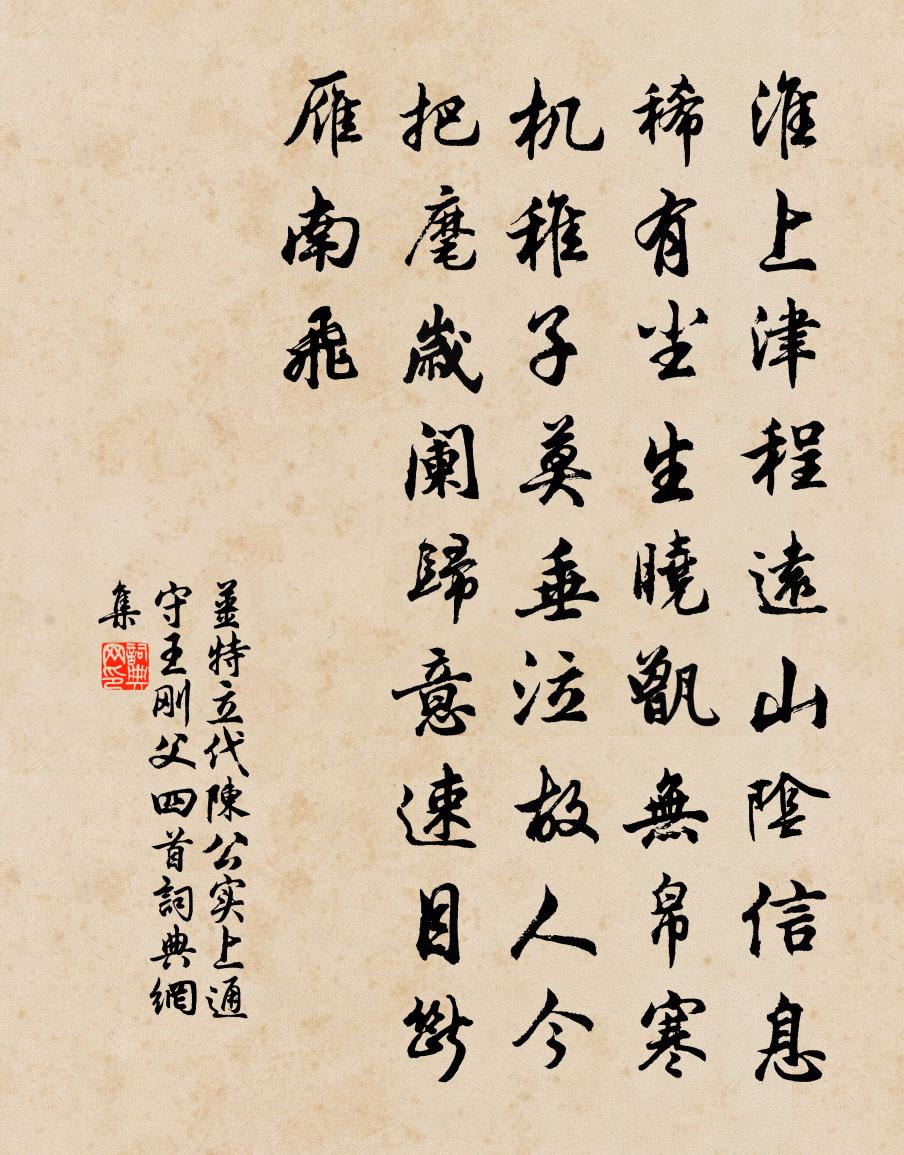 淮上津程遠山陰信息
稀有尘生曉甑無帛寒
机稚子莫垂泣故人今
把麾歲阑歸意速目斷
雁南飛
姜特立代陳公实上通
守王刚父四首詞典網
集
詞典
网印